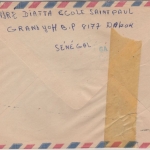 DIATTA ECOLE SAINT PAUL
GRAND YOFF B.P 8177 DAKAR
SENÉGAL